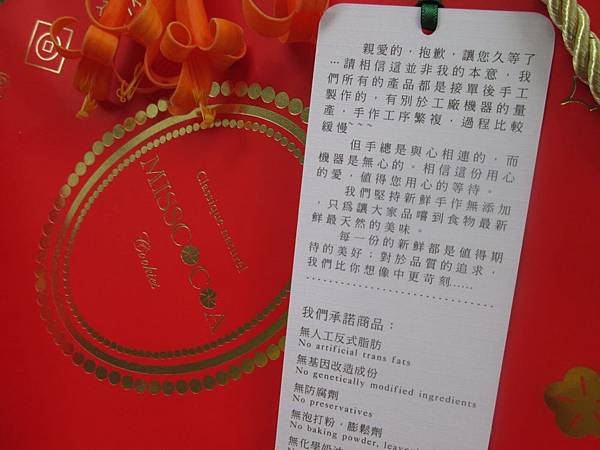 親愛的，抱歉，讓您久等了
…請相信這並非我的本意，我
們所有的產品都是接單後手工
製作的，有別於工廠機器的量
產，手作工序繁複，過程比較
緩慢~~~
但手總是與心相連的，而
機器是無心的。相信這份用心
的愛，值得您用心的等待。
我們堅持新鮮手作無添加
，只為讓大家品嚐到食物最新
鮮最天然的美味。
每一份的新鮮都是值得期
待的美好；對於品質的追求，
我們比你想像中更苛刻……
我們承諾商品：
無人工反式脂肪
No artificial trans fats
無基因改造成份
No genetically modified ingredients
無防腐劑
No preservatives
無泡打粉，膨鬆劑
No baking powder,
無化學奶油
Classique natural
MISSCOCOA
Cookies